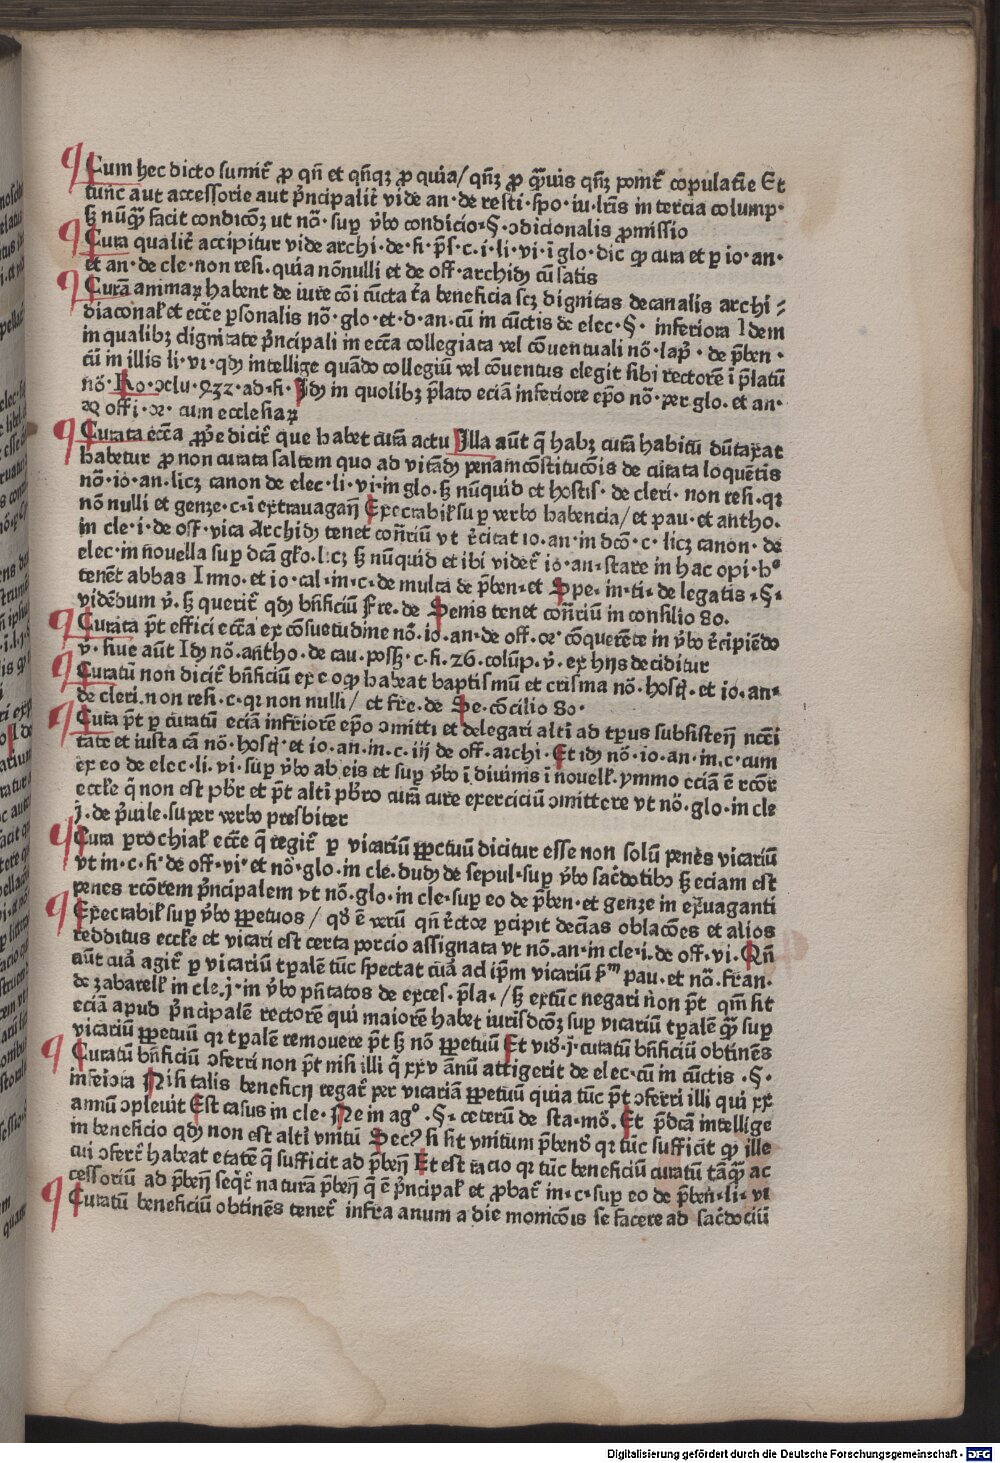 Cum hec dicto sumit᷑ ꝓ qn̄ et qn̄qꝫ ꝓ quia/ qn̄ꝫ ꝓ qͣuis qn̄ꝫ ponit᷑ copulatiē Et
tunc aut accessorie aut p̄ncipalit᷑ vide an·de resti·spo·iu·lr̄is in tercia colump·
sꝫ nūqͣ facit condicōꝫ ut nō·suꝑ v̄bo condicio·§·ɔdicionalis ꝓmissio
Cura qualit᷑ accipitur vide archi·de·fi·p̄s·c·i·li·vi·ī glo·dic ꝙ cura et ꝑ io·an·
et an·de cle·non resi·quia nōnulli et de off·archidy cū satis
Curā animaꝝ habent de iure cōi cūcta t᷑a beneficia scꝫ dignitas decanalis archi
diaconaɫ et ecc̄e ꝑsonalis nō·glo·et·d·an·cū in cūctis de elec·§· inferiora Idem
in qualibꝫ dignitate p̄ncipali in ecc̄a collegiata vel cōuentuali nō·lap᷑·de p̄ben·
cū in illis li·vi·qdy intellige quādo collegiū vel cōuentus elegit sibi rectorē ī p̄latū
nō·Ro·ɔclu·932·ad·fi·Idy in quolibꝫ p̄lato eciā inferiore ep̄o nō·per glo·et an·
de offi·or·cum ecclesiaꝝ
Curata ecc̄a ꝓp̄e dicit᷑ que habet curā actu Illa aūt q̄ habꝫ curā habitu dūtaxat
habetur ꝓ non curata saltem quo ad vitādy penam cōstitucōis de curata loquētis
nō·io·an·licꝫ canon de elec·li·vi·in glo·sꝫ nūquid et hostis·de cleri·non resi·qr
nō nulli et genze·c·i extrauagan̄ Execrabiɫ suꝑ verbo habencia/et pau·et antho·
in cle·i·de off·vica Archidy tenet con̄riū vt r̄citat io·an·in dcō·c·licꝫ canon·de
elec·in nouella suꝑ dcā glo·licꝫ sꝫ nūquid et ibi videt᷑ io·an·stare in hac opi·hͦ
tenēt abbas Inno·et io·cal·in·c·de multa de p̄ben·et Spe·in·ti·de legatis·§·
vidēdum v᷑·sꝫ querit᷑ qdy bn̄ficiū Fre·de Senis tenet con̄riū in consilio 80·
Curata p̄t effici ecc̄a ex cōsuetudine nō·io·an·de off·or·cōquerēte in v̄bo r̄cipiēdo
v᷑·siue aūt Idy nō·antho·de cau·possꝫ·c·fi·26·colūp·v᷑·ex hijs deciditur
Curatū non dicit᷑ bn̄ficiū ex eo ꝙ habeat baptismū et crisma nō·hosti᷑·et io·an·
de cleri·non resi·c·qr non nulli/ et fre·de Se·cōcilio 80·
Cura p̄t ꝑ curatū eciā inferiorē ep̄o ɔmitti et delegari alt᷑i ad tp̄us subsisten̄ ncc̄i
tate et iusta cā nō·hosti᷑·et io·an·in·c·iij de off·archi·Et idy nō·io·an·in·c·cum
ex eo de elec·li·vi·suꝑ v̄bo ab eis et suꝑ v̄bo ī diuinis ī nouelɫ·ymmo eciā ē rcōr
eccɫe q̄ non est pb̄r et p̄t alt᷑i pb̄ro curā cure exerciciū ɔmittere vt nō·glo·in cle
j·de p̄uile·super verbo presbiter
Cura prochiaɫ ecc̄e q̄ regit᷑ ꝑ vicariū ꝑpetuū dicitur esse non solū penes vicariū
vt in·c·fi·de off·vi·et nō·glo·in cle·dudy de sepul·suꝑ v̄bo sac̄dotibꝯ sꝫ eciam est
penes rcōrem p̄ncipalem vt nō·glo·in cle·suꝑ eo de p̄ben·et genze in ex̄uaganti
Execrabiɫ suꝑ v̄bo ꝑpetuos/ qd̄ ē verū qn̄ r̄ctor ꝑcipit decīas oblacōes et alios
redditus eccɫe et vicari est certa porcio assignata vt nō·an·in cle·i·de off·vi·Qn̄
aūt cura agit᷑ ꝑ vicariū tꝑalē tūc spectat cura ad ip̄m vicariū sm̄ pau·et nō·fran·
de zabarelɫ in cle·j·in v̄bo pn̄tatos de exces·p̄la·/sꝫ extūc negari non p̄t qm̄ sit
eciā apud p̄ncipalē rectorē qui maiorē habet iurisdcōꝫ suꝑ vicariū tꝑalē qͣ suꝑ
vicariū ꝑpetuū qr tꝑalē remouere p̄t sꝫ nō ꝑpetuū Et vid᷑·j·curatū bn̄ficiū obtinēs
Curatū bn̄ficiū ɔferri non p̄t nisi illi q̄ xxv annū attigerit de elec·cū in cūctis·§·
inferiora Nisi talis beneficij regat᷑ per vicariā ꝑpetuū quia tūc p̄t ɔferri illi qui xx
annū ɔpleuit Est casus in cle·Ne in agͦ·§·ceterū de sta·mō·Et p̄dcām intellige
in beneficio qdy non est alt᷑i vnitū Secꝰ si sit vnitum p̄bend᷑ qr tūc sufficit ꝙ ille
cui ɔfert᷑ habeat etatē q̄ sufficit ad p̄ben̄ Et est racio qr tūc beneficiū curatū tāqͣ ac
cessoriū ad p̄ben̄ seqt᷑ naturā p̄ben̄ q̄ ē p̄ncipaɫ et ꝓbat᷑ in·c·suꝑ eo de p̄ben·li·vi
Curatū beneficiū obtinēs tenet᷑ infra anum a die monicōis se facere ad sac̄dociū
Digitalisierung gefördert durch die Deutsche Forschungsgemeinschaft - DFG